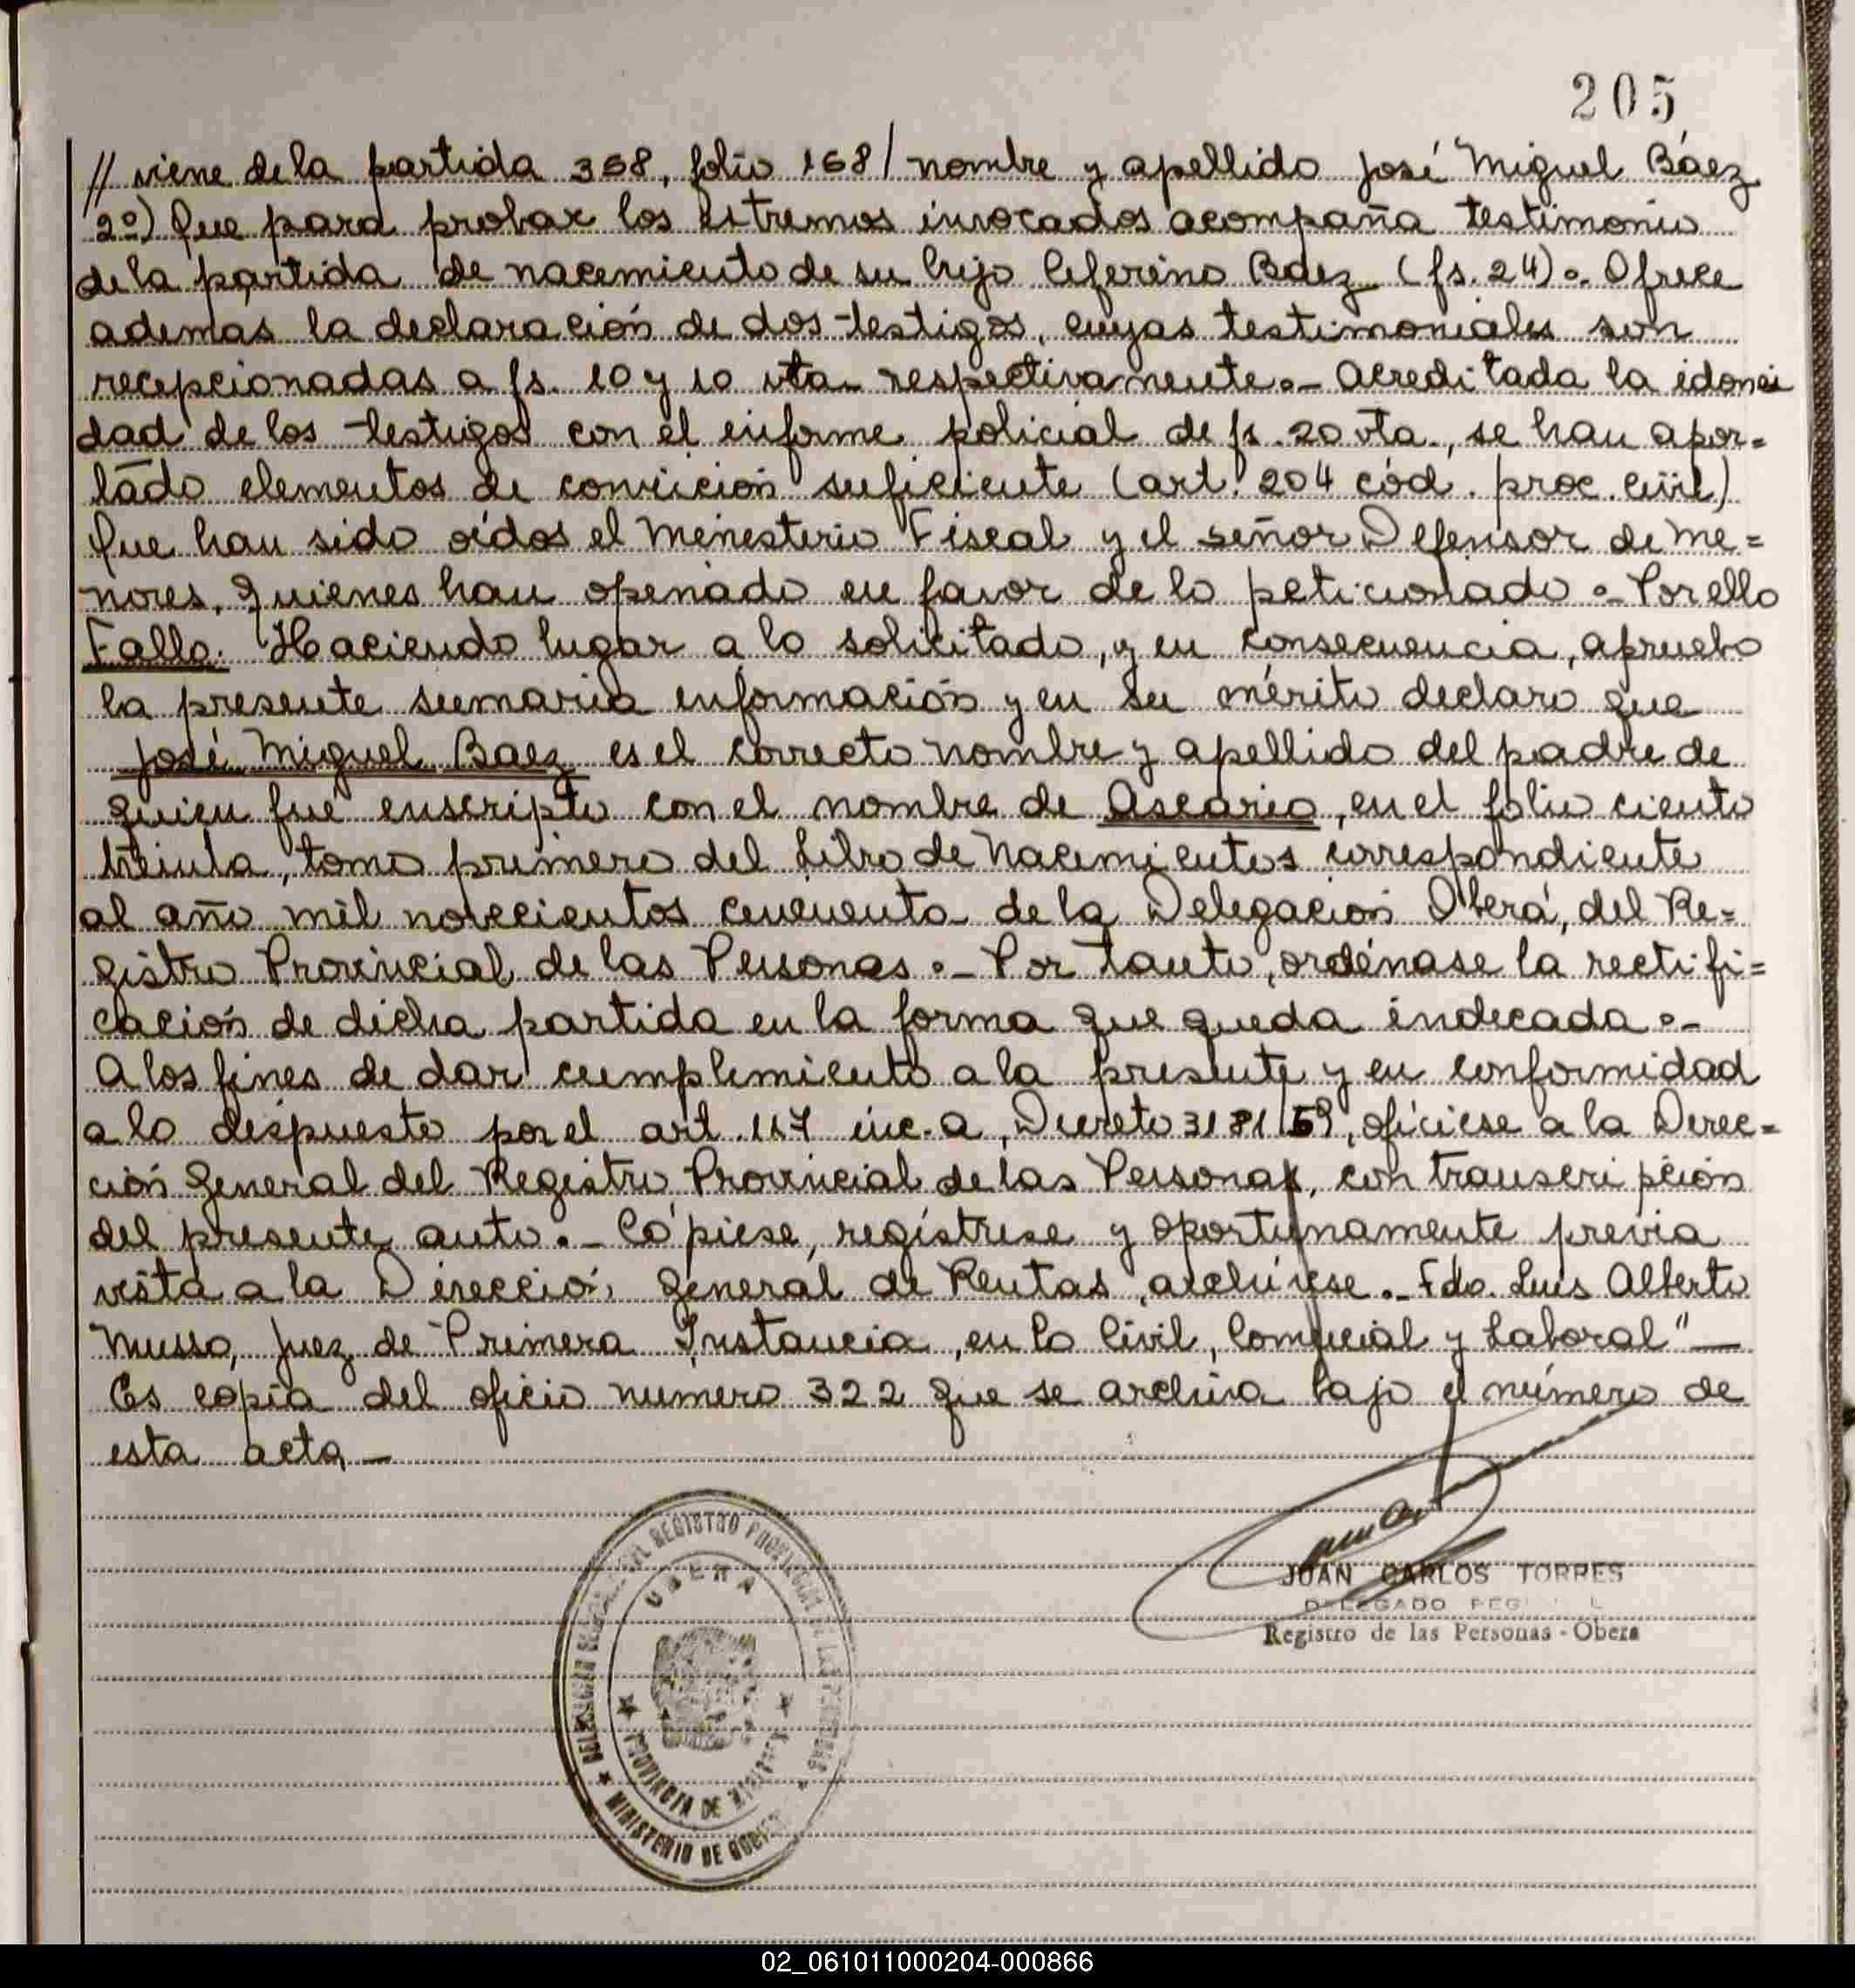 205
// viene de la partida 368, folio 168/ nombre y apellido José Miguel Báez
2º) Que para probar los estremos invocados acompaña testimonio
de la partida de nacimiento de su hijo Ceferino Baez (fs. 24).- Ofrece
ademas la declaración de dos testigos, cuyas testimoniales son
recepcionadas a fs. 10 y 10 vta. respectivamente.- Acreditada la idonei
dad de los testigos con el informe policial de fs. 20 vta., se han apor=
tado elementos de convicción suficiente (art. 204 cód. proc. civil)
Que han sido oídos el Ministerio Fiscal y el señor Defensor de me=
nores, quienes han opinado en favor de lo peticionado.- Por ello
Fallo: Haciendo lugar a lo solicitado, y en consecuencia, apruebo
la presente sumaria información y en su mérito declaro que
José Miguel Baez es el correcto nombre y apellido del padre de
quien fué inscripto con el nombre de Ascario, en el folio ciento
treinta, tomo primero del Libro de Nacimientos correspondiente
al año mil novecientos cincuenta de la Delegación Oberá, del Re=
gistro Provincial de las Personas.- Por tanto, ordénase la rectifi=
cación de dicha partida en la forma que queda indicada.-
A los fines de dar cumplimiento a la presente y en conformidad
a lo dispuesto por el art. 117 inc. a, Decreto 3181/59, ofíciese a la Direc=
ción General del Registro Provincial de las Personas, con transcripción
del presente auto.- Cópiese, regístrese y oportunamente previa
vista a la Dirección General de Rentas, archívese.- Fdo. Luis Alberto
Musso, Juez de Primera Instancia, en lo Civil, Comercial y Laboral"—
Es copia del oficio numero 322 que se archiva bajo el número de
esta acta —
DELEGACION REGISTRO PROVINCIAL DE LAS PERSONAS
OBERA
PROVINCIA DE MISIONES
MINISTERIO DE GOBIERNO
JUAN CARLOS TORRES
DELEGADO
Registro de las Personas - Obera
02_061011000204-000866